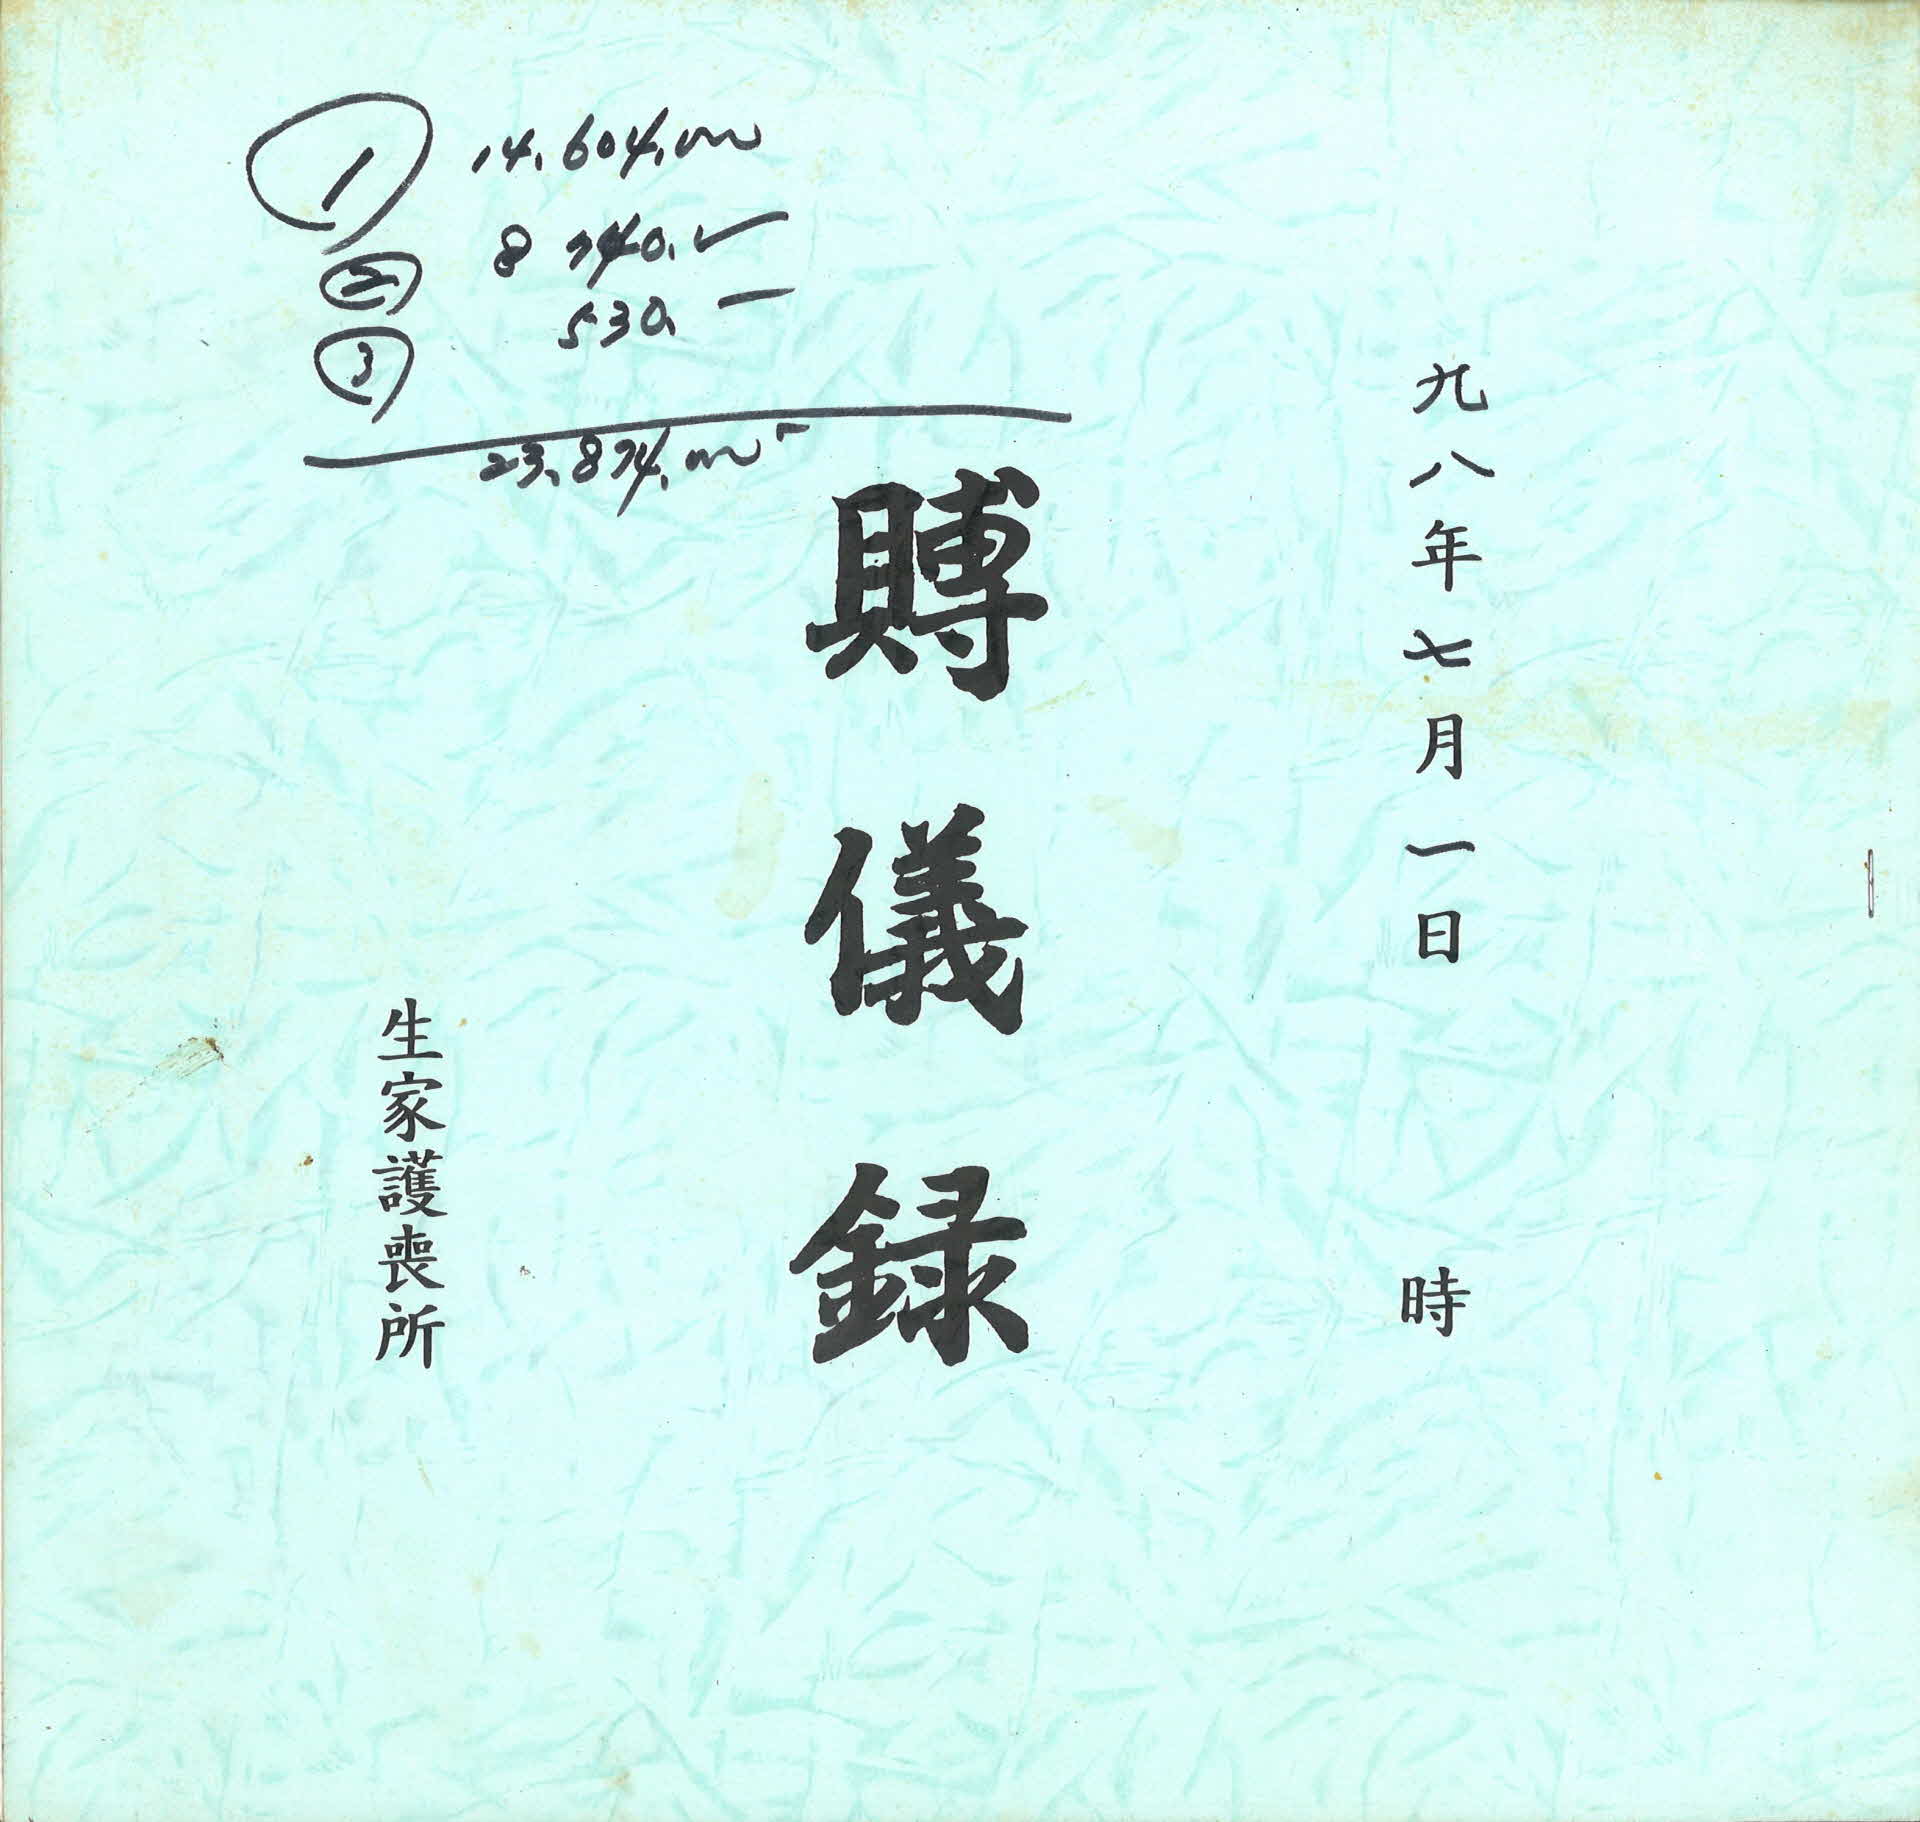 ① 14,604,000
② 8 740,-
③ 530,-
23,874,000-
九八年七月一日 時
賻儀録
生家護喪所